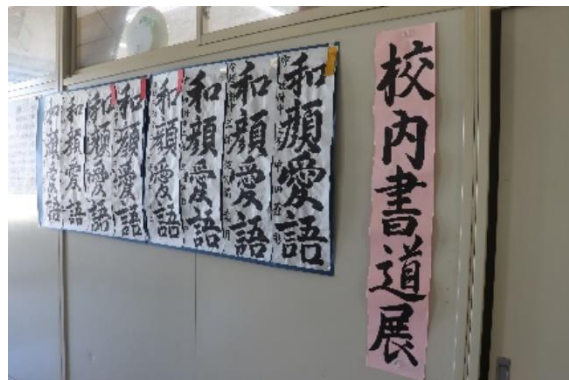 校内書道展
和顔愛語
和顔愛語
和顔愛語
和顔愛語
和顔愛語
和顔愛語
和顔愛語
和顔愛語